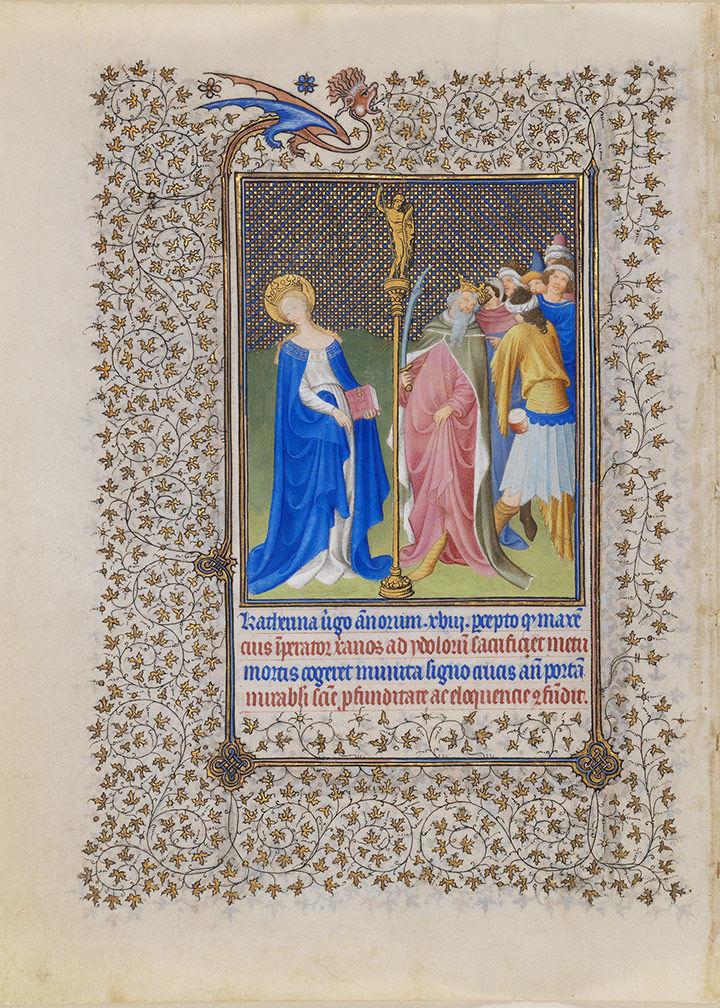 Katherina v̄go ān̄orum .xviij. p̄cepto qƺ maxē
cius īperator x̄anos ad ydolorū sacrificiet metu
mortis cogeret munita signo crucis añ portā
mirabli sciē p̄funditate ac eloquencie ꝛ fudit.